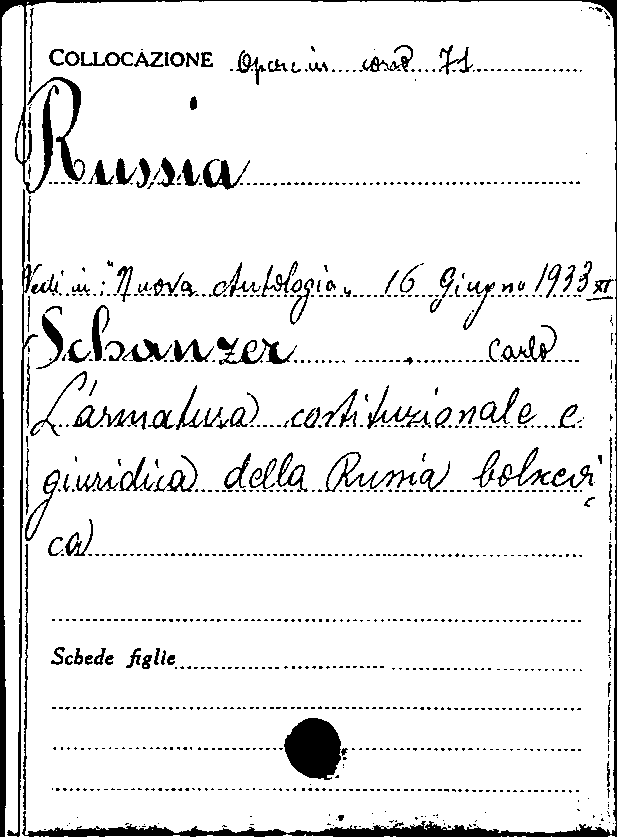 COLLOCAZIONE Opere in corso 71
Russia
Vedi in: "Nuova Antologia„ 16 Giugno 1933 XI
Schanzer Carlo
L'armatura costituzionale e
giuridica della Russia bolscevi
ca
Schede figlie